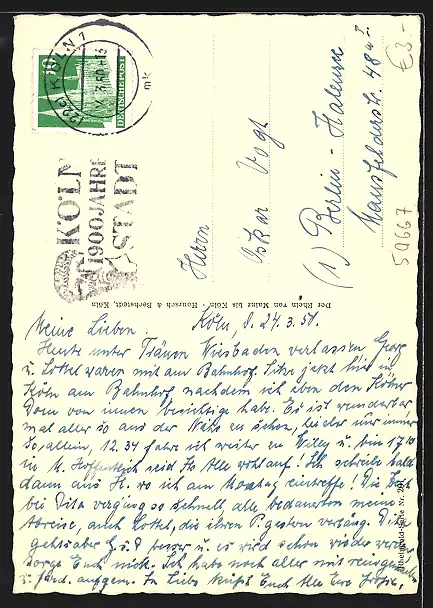 22c KÖLN 1
10
DEUTSCHE POST
mk
KÖLN
1900 JAHRE
STADT
Herrn
Oskar Vogt
(1) Berlin-Halensee
Mansfelderstr. 48
€ 3.-
59667
Der Rhein von Mainz bis Köln - Hoursch & Bechstedt, Köln
Rheingold-Serie Nr. 291
Köln, d. 24.3.51.
Meine Lieben.
Heute unter Tränen Wiesbaden verlassen, Georg
u. Lottel waren mit am Bahnhof. Sitze jetzt hier in
Köln am Bahnhof, nachdem ich eben den Kölner
Dom von innen besichtigt habe. Es ist wunderbar
mal alles so aus der Nähe zu sehen, leider nur immer
so allein, 12.34 fahre ich weiter zu Willy u. bin 17.10
in M. Hoffentlich seid Ihr Alle wohlauf. Ich schreibe bald
dann aus H. wo ich am Montag eintreffe! Die Zeit
bei Dita verging so schnell, alle bedauerten meine
Abreise, auch Lottel, die ihren
geht es aber besser u. es wird schon wieder werden
sorge Euch nicht. Ich habe noch alles mit
In Liebe küßt Euch Alle Eure